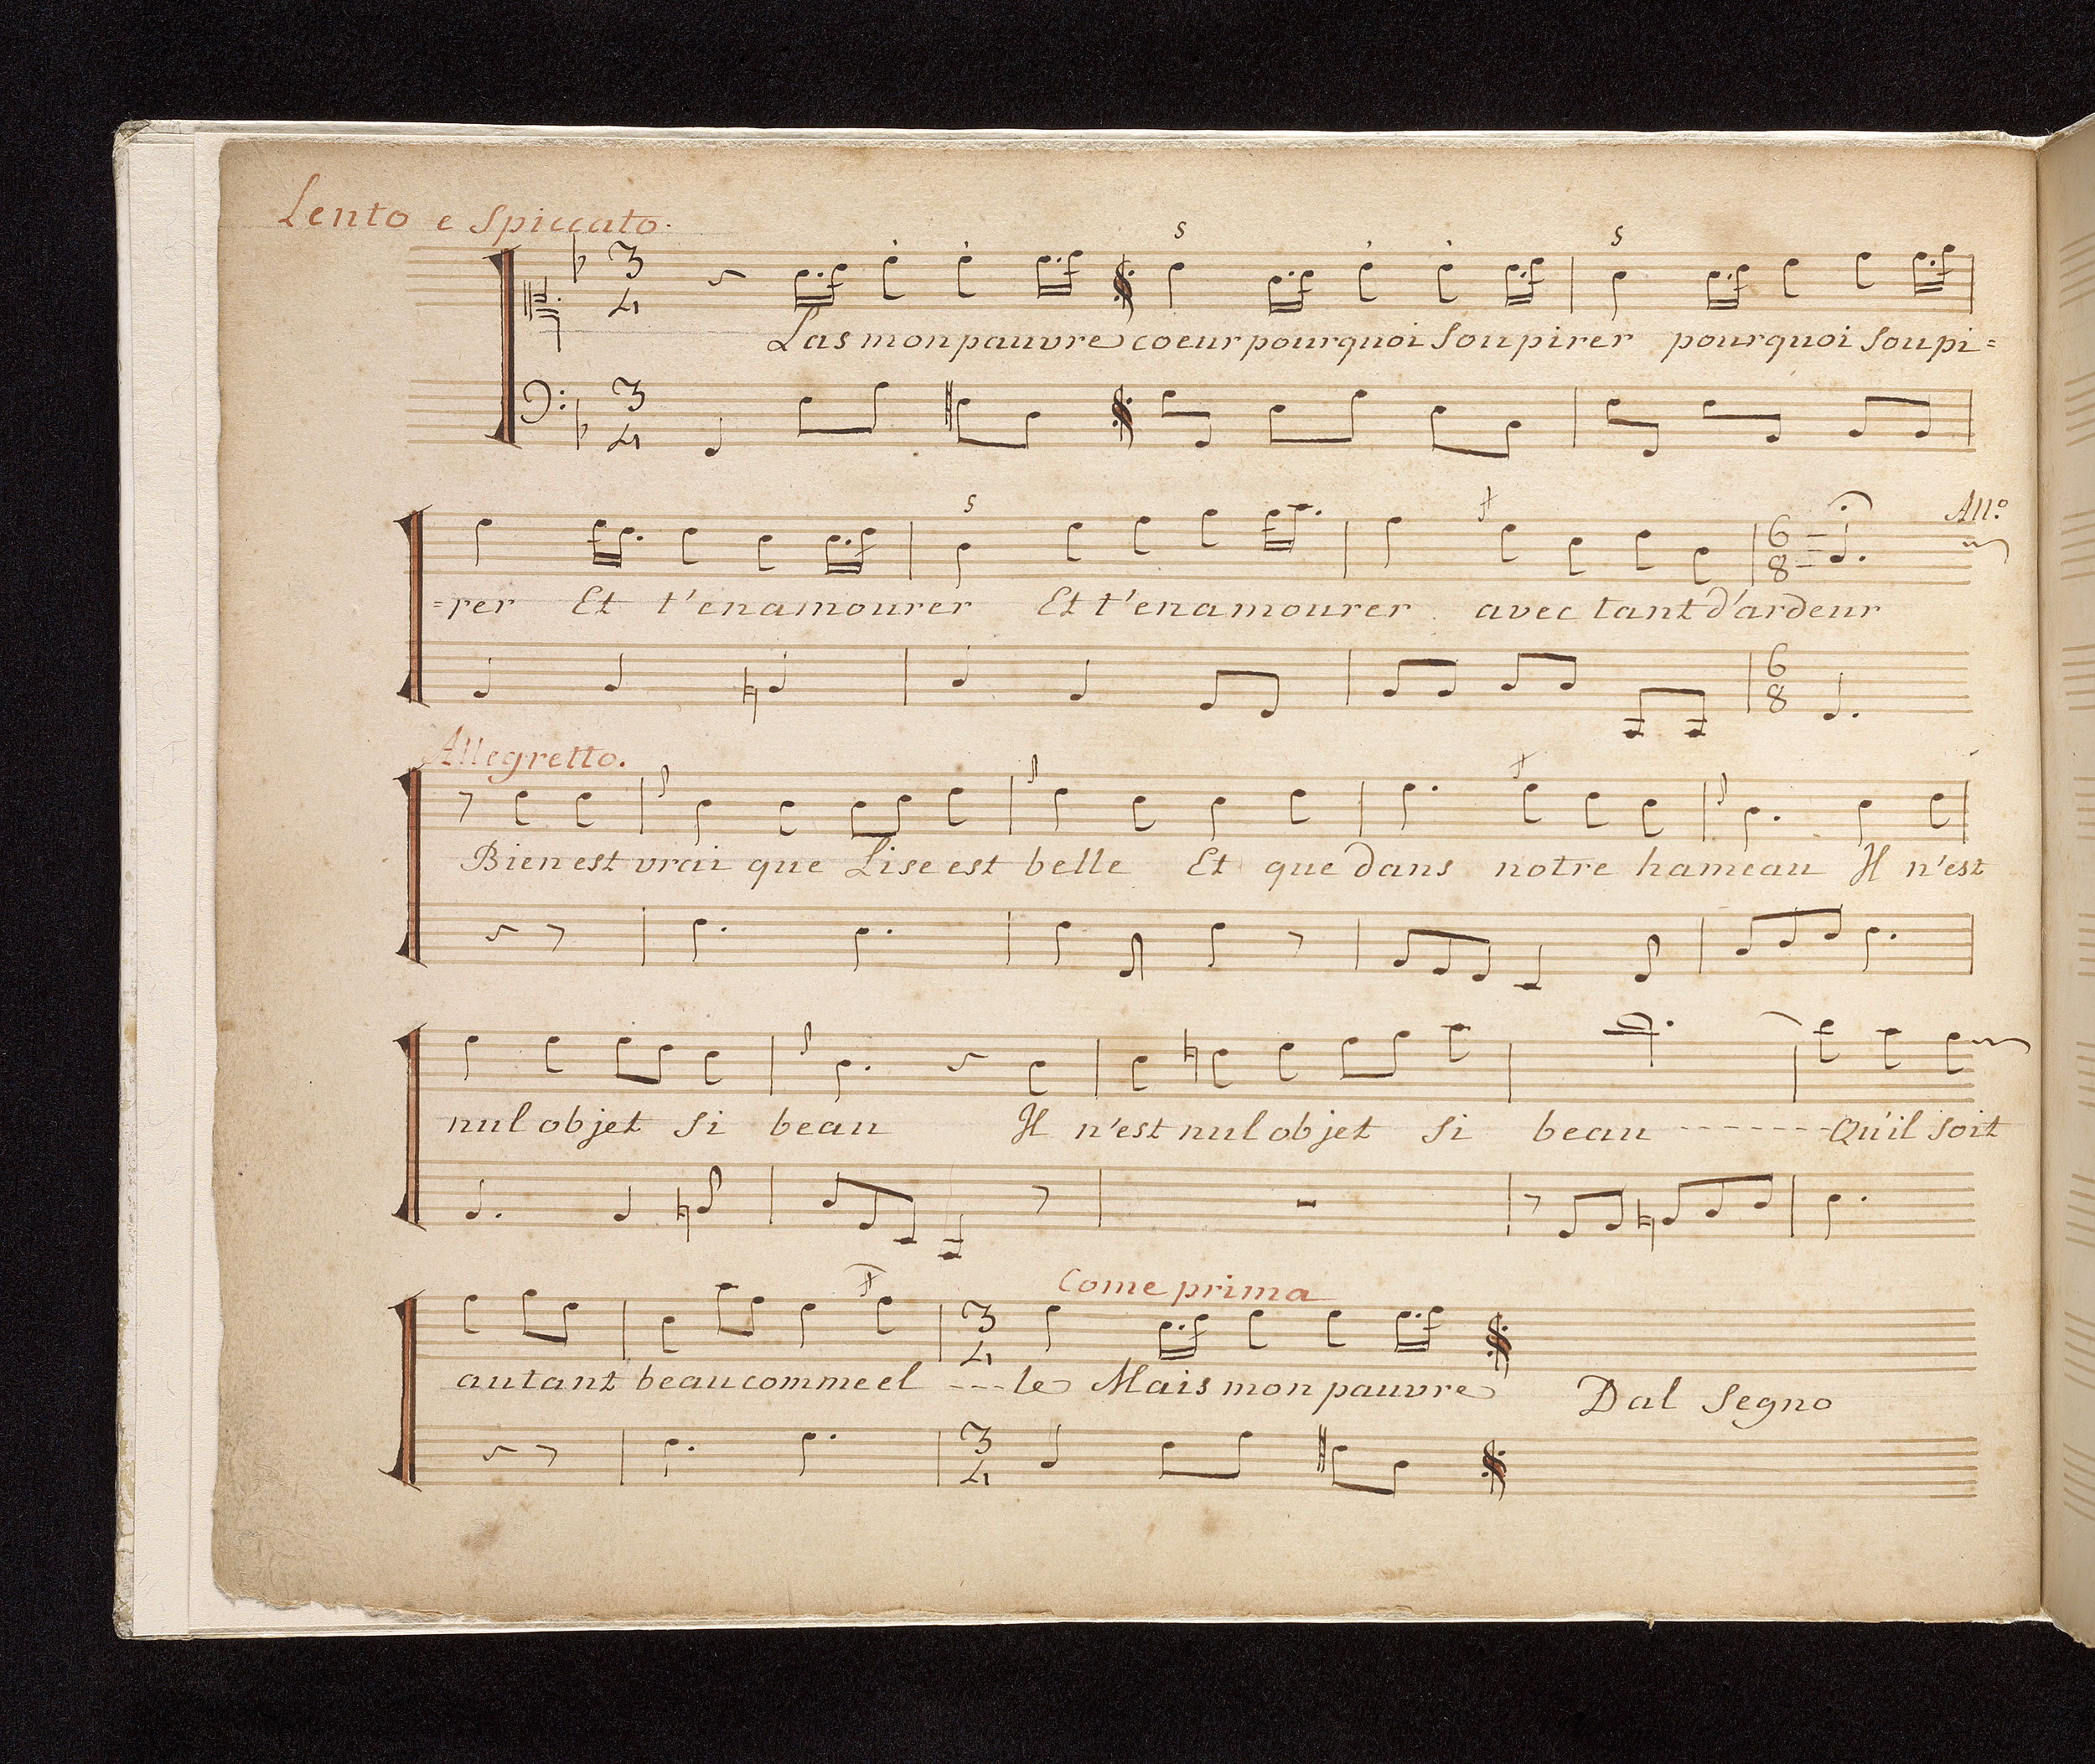 Lento e Spiccato.
Las mon pauvre coeur pourquoi soupirer pourquoi soupi=
All.o
=rer Et t'enamourer Et t'enamourer avec tant d'ardeur
Allegretto.
Bien est vrai que Lise est belle Et que dans notre hameau Il n'est
nul objet si beau Il n'est nul objet si beau ------- Qu'il soit
Come prima
autant beau comme el ---le Mais mon pauvre Dal Segno